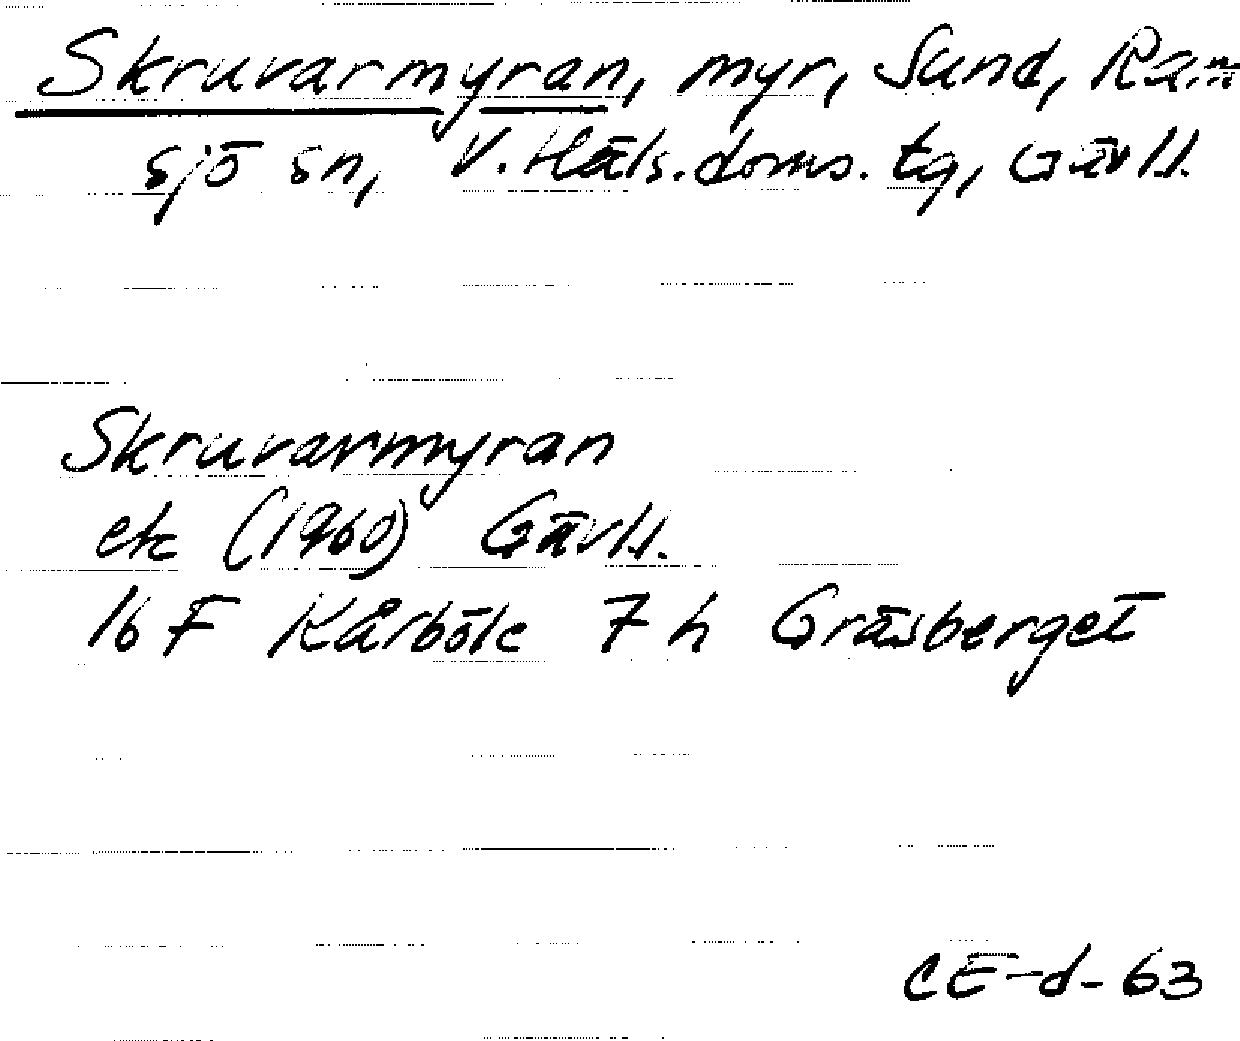 Skruvarmyran, myr, Sund, Ram
sjö sn, V. Häls. doms. tg, Gävl.l.
Skruvarmyran
ek (1960) Gävl.l.
16 F Kårböle 7 h Gräsberget
CE-d-63